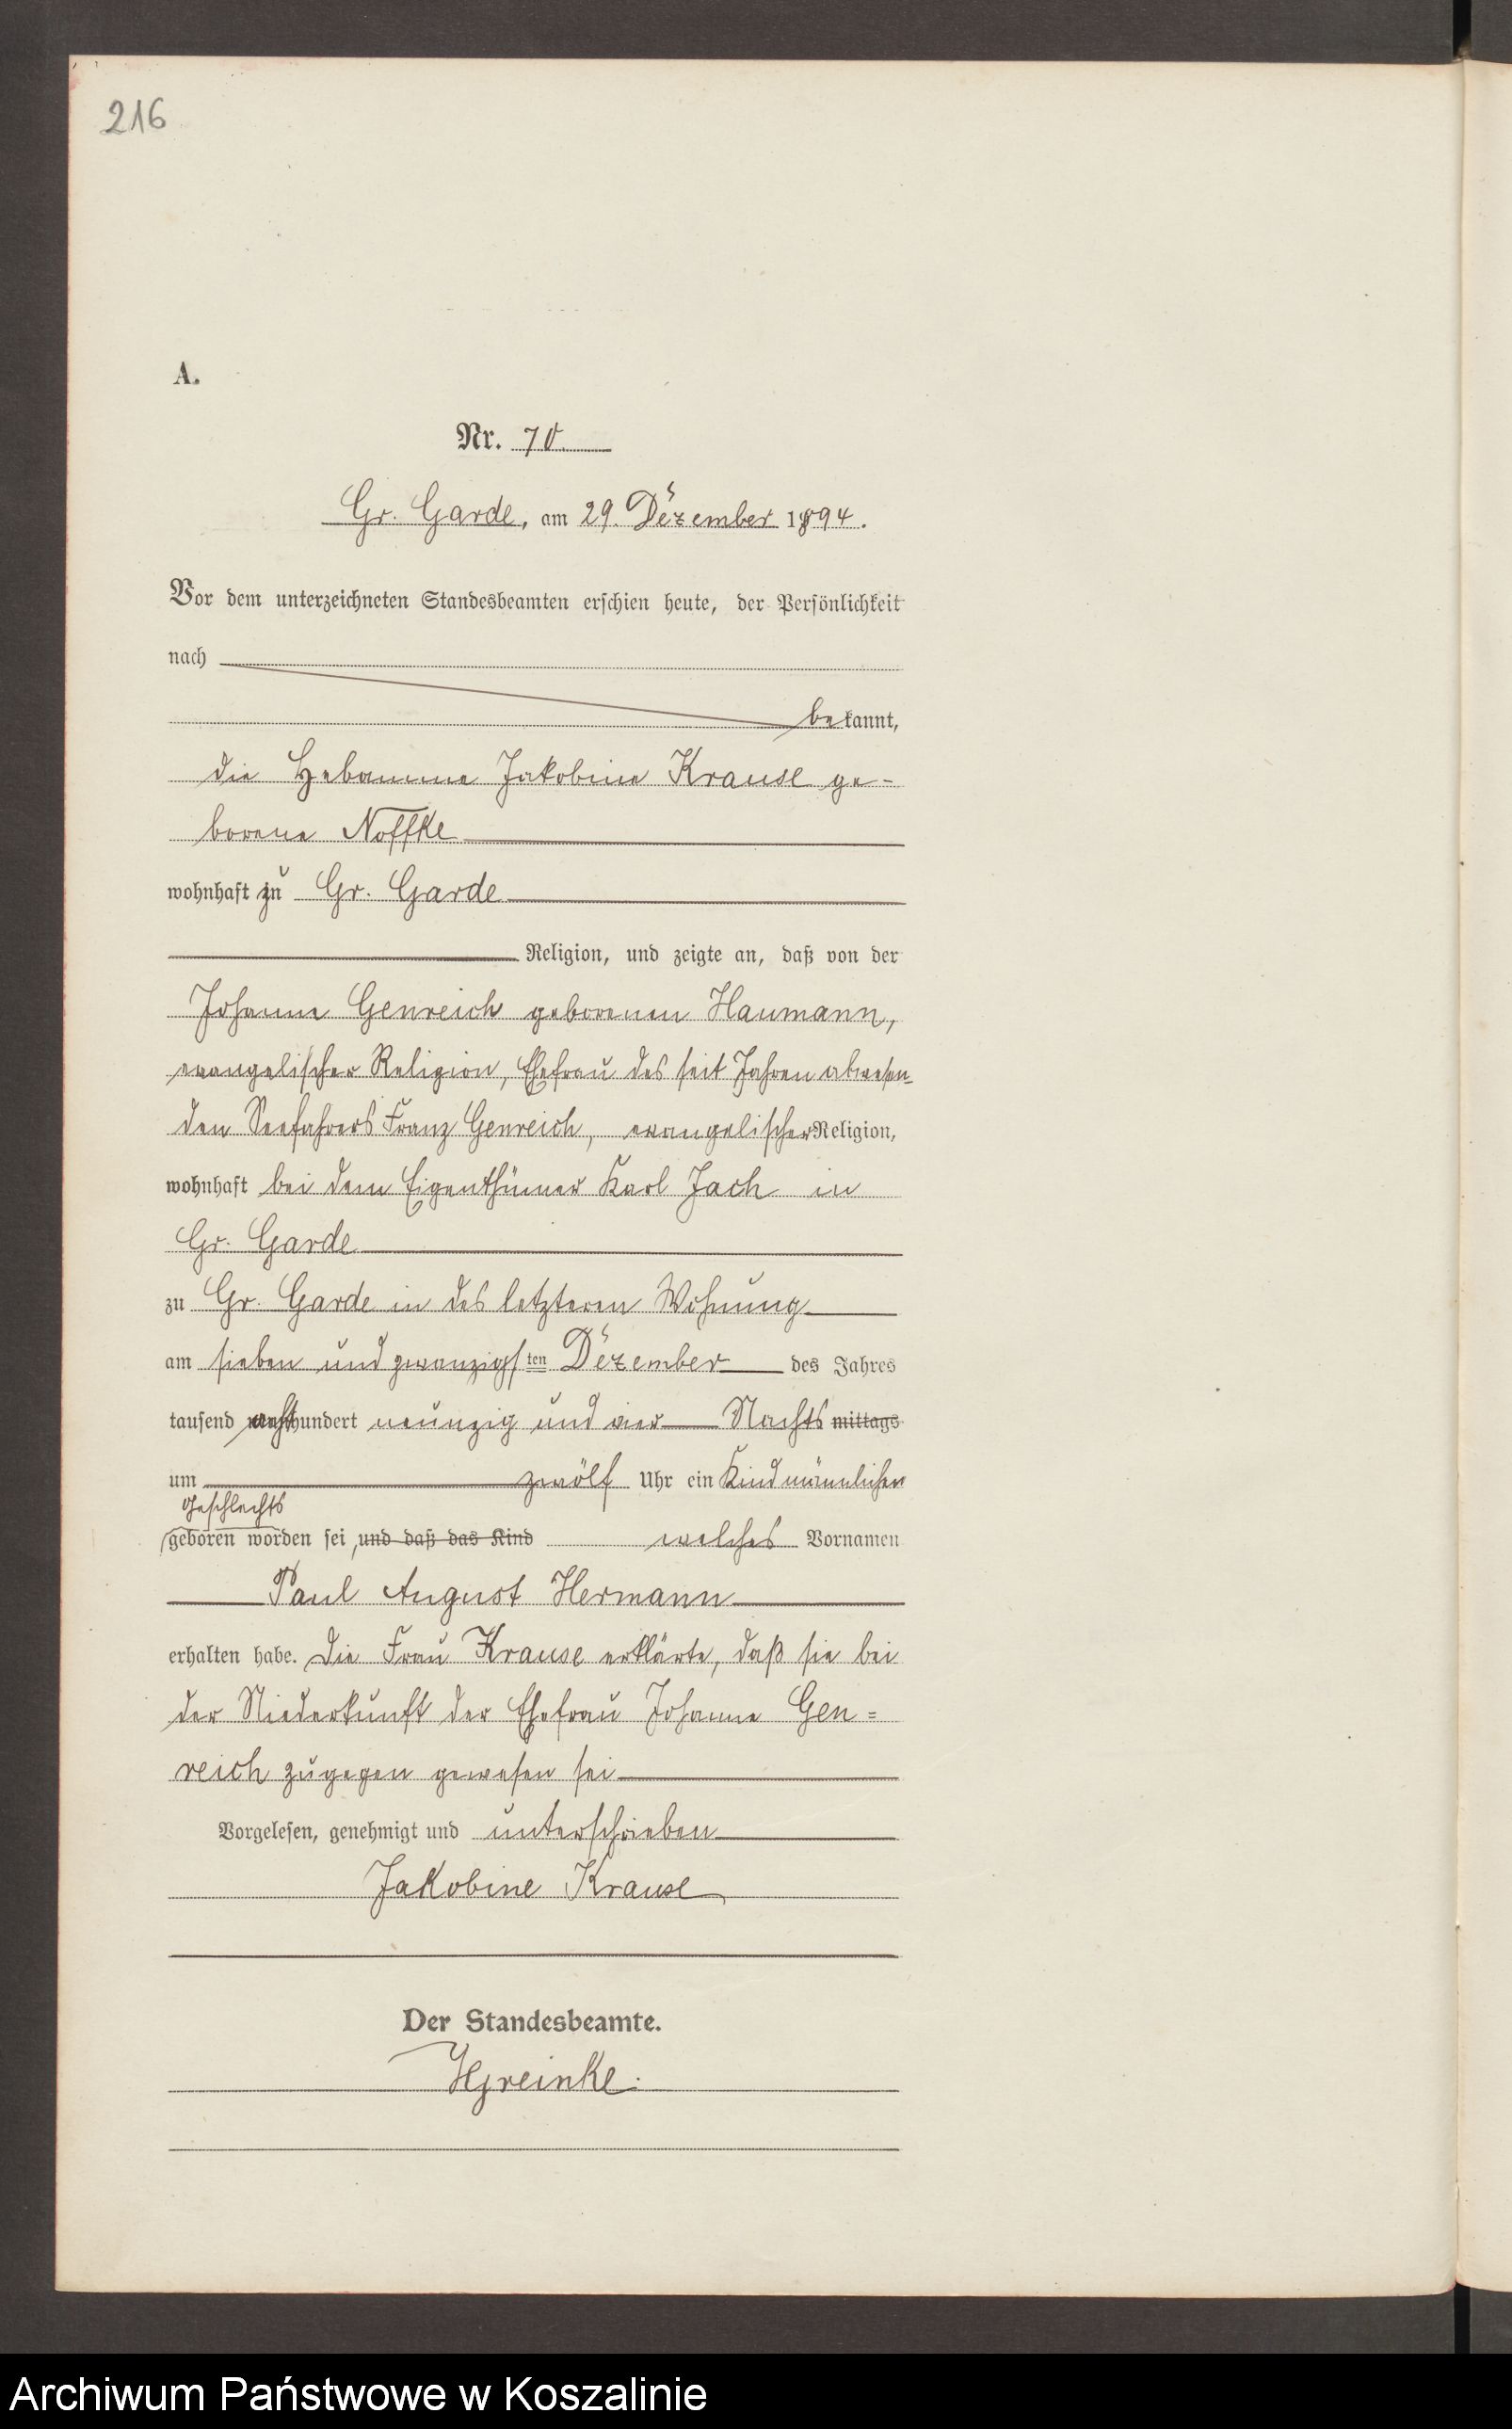 216
A.
Nr. 70.
Gr. Garde, am 29. Dézember 1894.
Vor dem unterzeichneten Standesbeamten erschien heute, der Persönlichkeit
nach
bekannt,
die Hebamme Jakobine Krause ge-
borene Noffke
wohnhaft zu Gr. Garde
Religion, und zeigte an, daß von der
Johanne Genreich geborenen Haumann,
evangelischer Religion, Ehefrau des seit Jahren abwesen-
den Seefahrers Franz Genreich, evangelischer Religion,
wohnhaft bei dem Eigenthümer Karl Jach in
Gr. Garde
zu Gr. Garde in des letzteren Wohnung
am sieben und zwanzigsten Dézember des Jahres
tausend achthundert neunzig und vier Nachts mittags
um zwölf Uhr ein Kind männlichen
Geschlechts
geboren worden sei, und daß das Kind welches Vornamen
Paul August Hermann
erhalten habe. Die Frau Krause erklärte, daß sie bei
der Niederkunft der Ehefrau Johanne Gen=
reich zugegen gewesen sei
Vorgelesen, genehmigt und unterschrieben
Jakobine Krause
Der Standesbeamte.
Archiwum Państwowe w Koszalinie